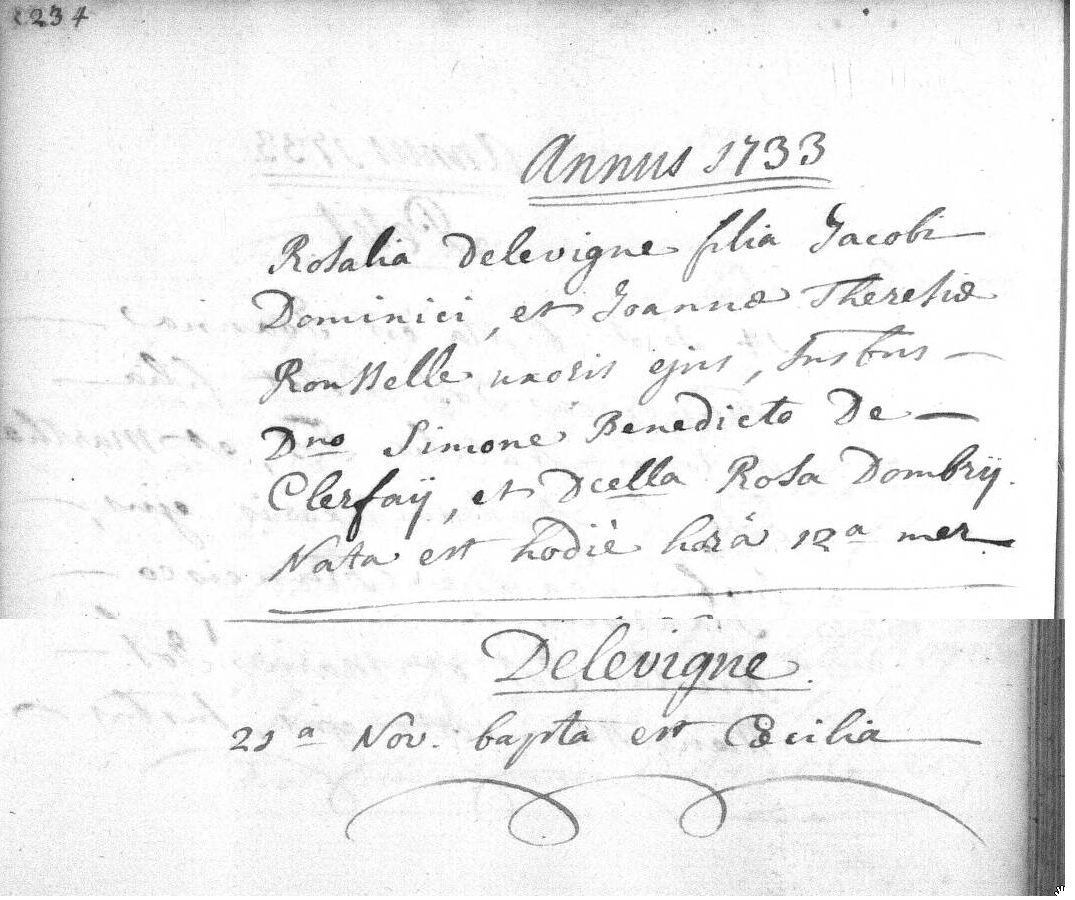 234
Annus 1733
Rosalia Delevigne filia Jacobi
Dominici, et Joannæ Theresiæ
Rousselle uxoris ejus, Susbus
Dno Simone Benedicto De
Clerfaÿ, et Dcella Rosa Dombrÿ.
Nata est hodiè horâ 12a mer
Delevigne.
21a Nov. bapta est Cæcilia